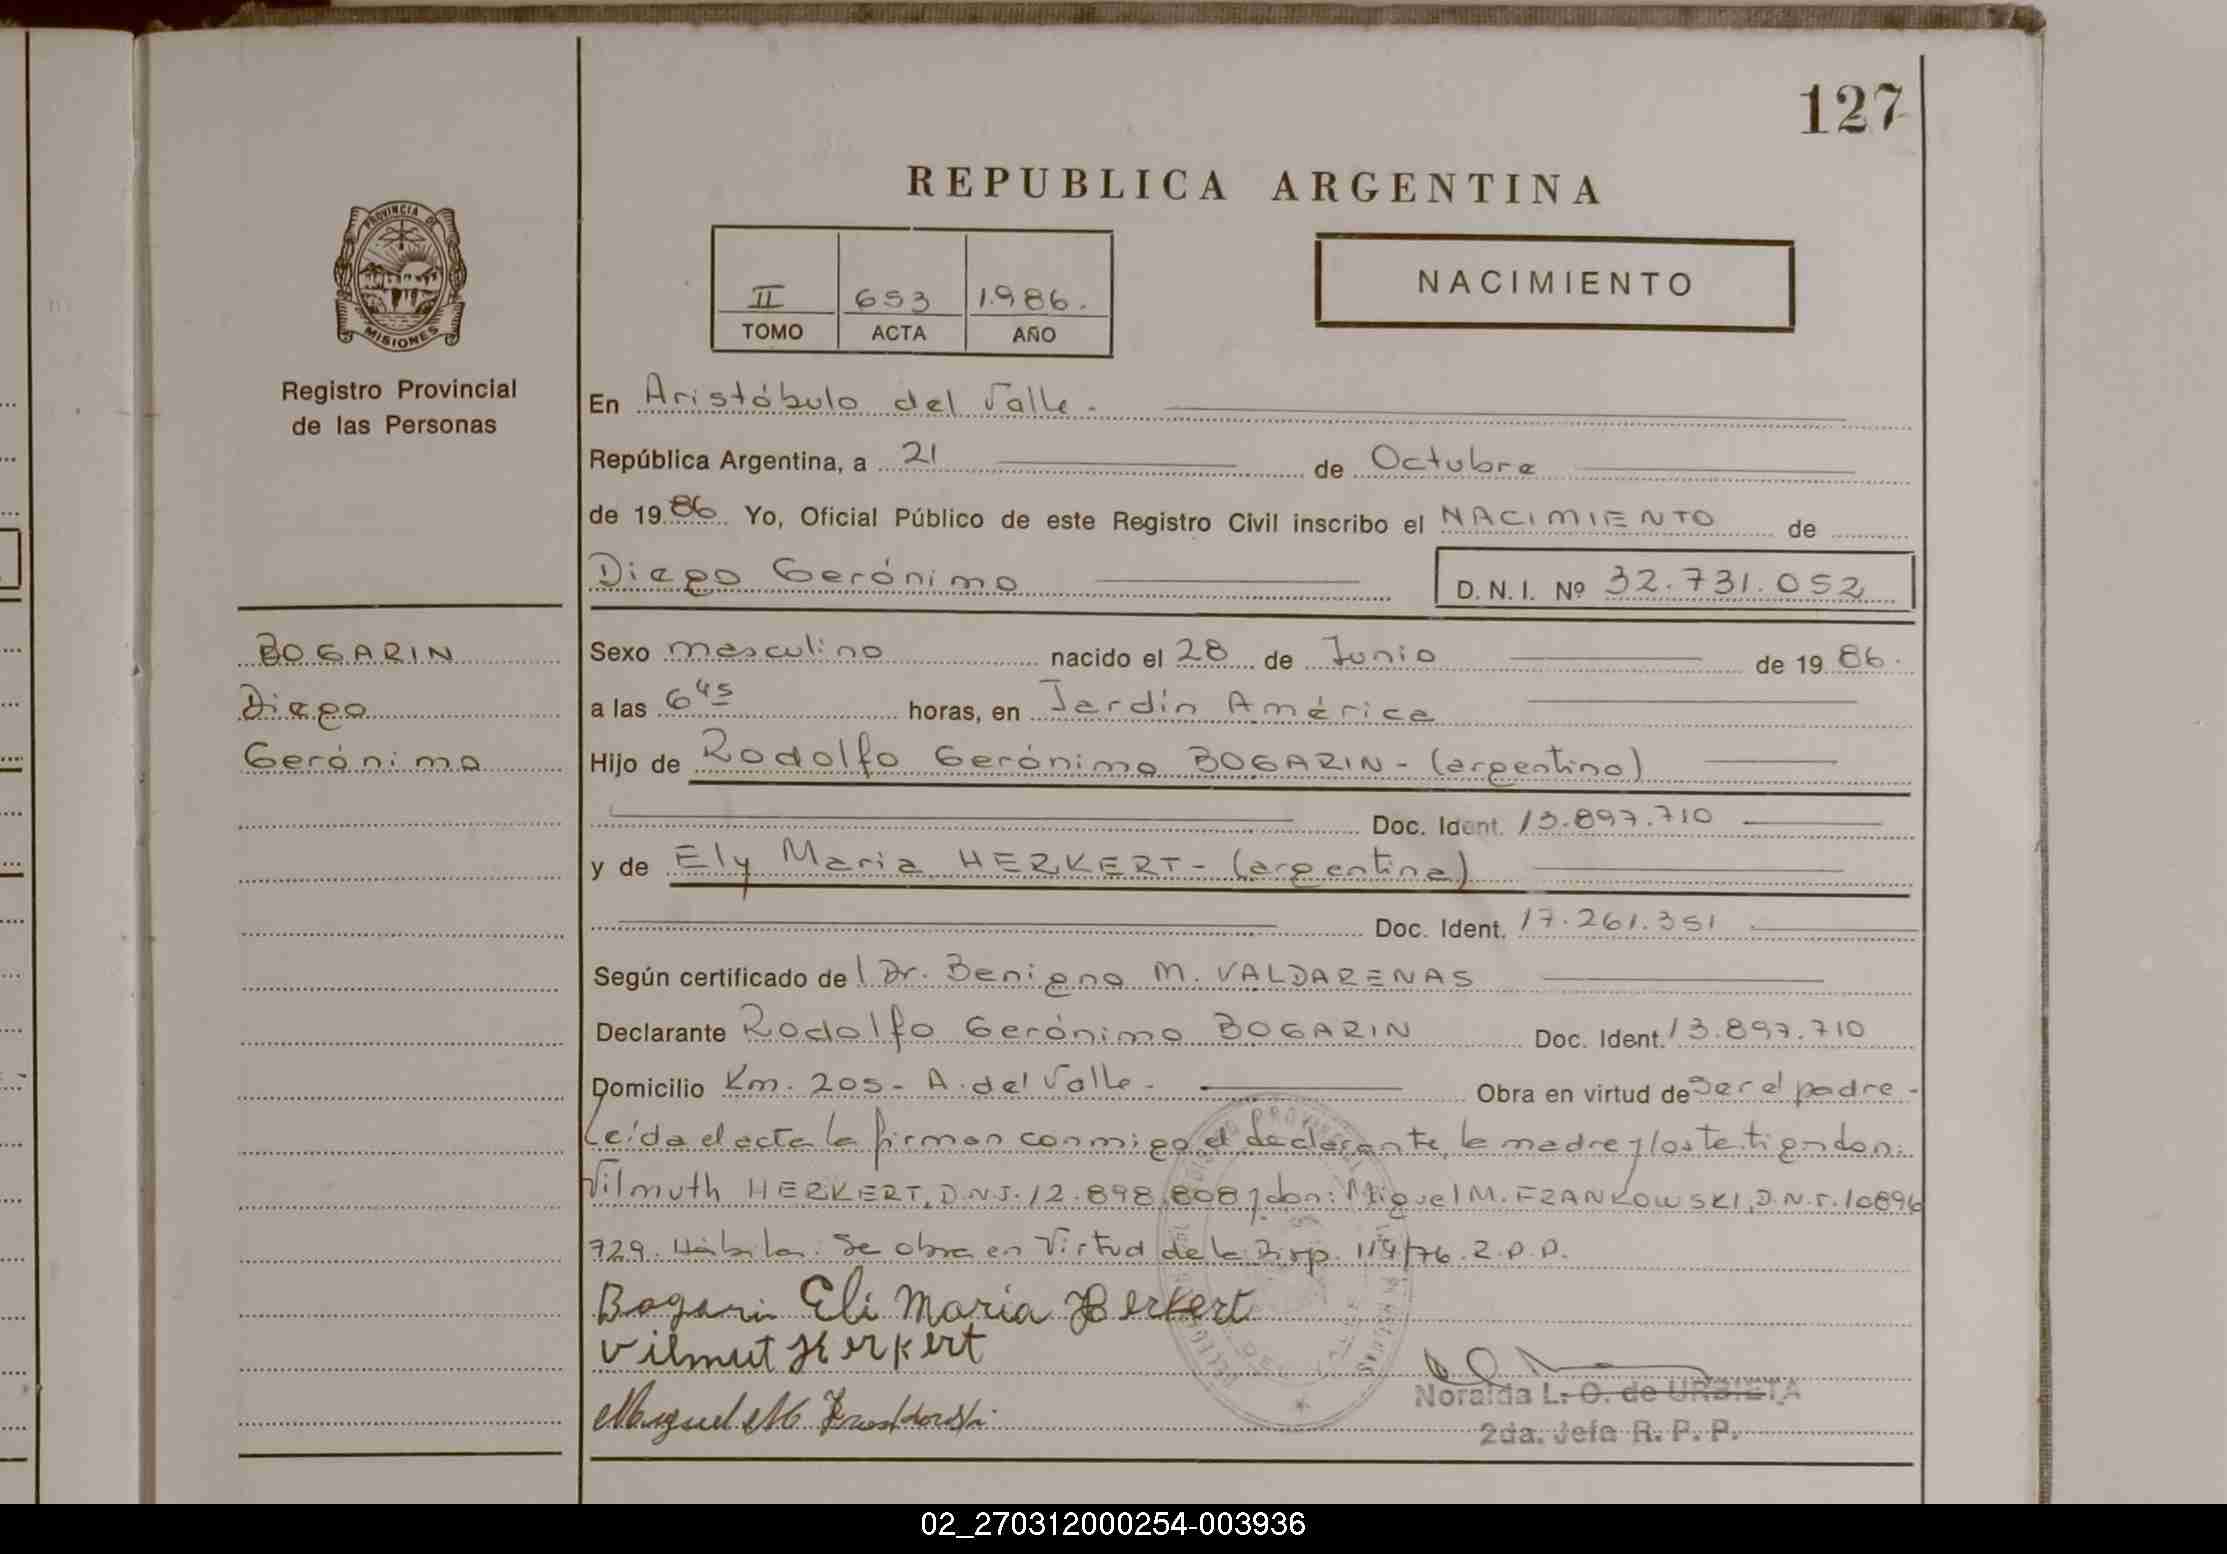 127
REPUBLICA ARGENTINA
PROVINCIA DE
MISIONES
II 653 1.986.
TOMO ACTA AÑO
NACIMIENTO
Registro Provincial
de las Personas
En Aristóbulo del Valle.
República Argentina, a 21 de Octubre
de 1986 Yo, Oficial Público de este Registro Civil inscribo el NACIMIENTO de
Diego Gerónimo D.N.I. Nº 32.731.052
BOGARIN
Diego
Gerónimo
Sexo masculino nacido el 28 de Junio de 1986.
a las 6 45 horas, en Jardín América
Hijo de Rodolfo Gerónimo BOGARIN - (argentino)
Doc. Ident. 13.897.710
y de Ely Maria HERKERT - (argentina)
Doc. Ident. 17.261.351
Según certificado del Dr. Benigno M. VALDARENAS
Declarante Rodolfo Gerónimo BOGARIN Doc. Ident. 13.897.710
Domicilio Km. 205 - A. del Valle. Obra en virtud de Ser el padre -
Leída el acta la firman conmigo el declarante, la madre y los testigos don:
Vilmuth HERKERT, D.N.I. 12.898.808 y don: Miguel M. FRANKOWSKI, D.N.I. 10896
729. Hábiles. Se obra en Virtud de la Disp. 114/76. R.P.P.
Bogarin Eli Maria Herkert
Vilmut Herkert
Miguel M
Noralda L. O. de URBIETA
2da. Jefa R. P. P.
02_270312000254-003936